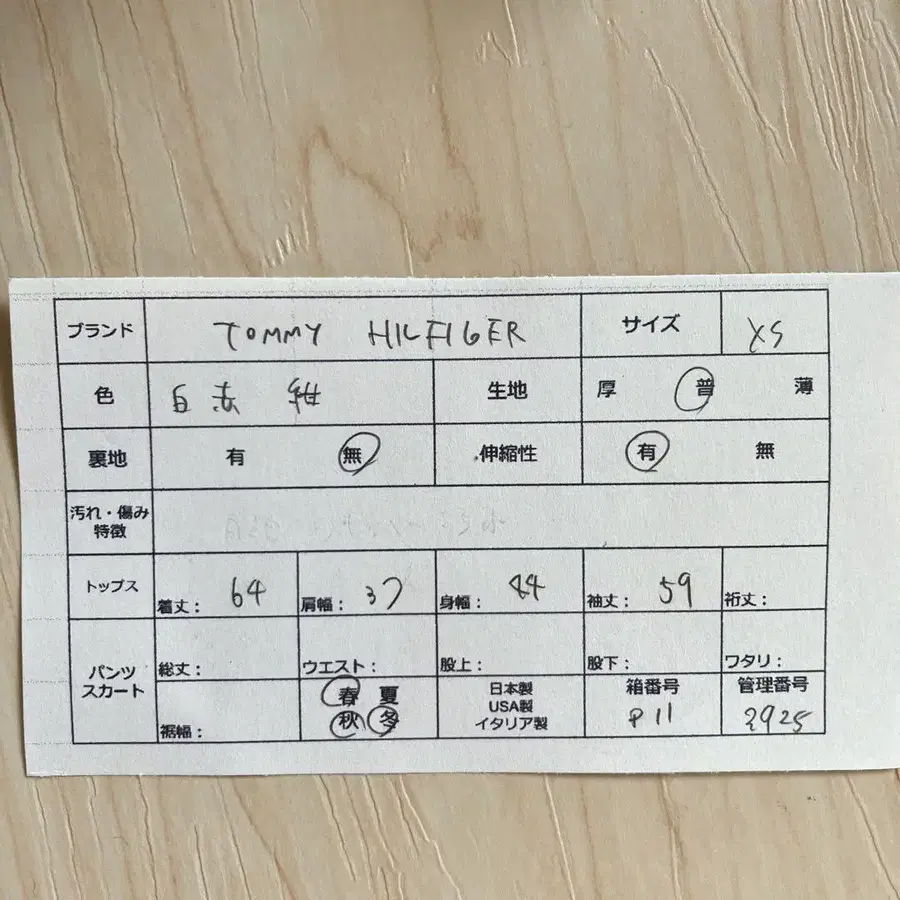 ブランド TOMMY HILFIGER サイズ XS
色 白 赤 紺 生地 厚 普 薄
裏地 有 無 伸縮性 有 無
汚れ・傷み
特徴
トップス 着丈: 64 肩幅: 37 身幅: 44 袖丈: 59 裄丈:
パンツ
スカート
総丈: ウエスト: 股上: 股下: ワタリ:
裾幅:
春 夏
秋 冬
日本製
USA製
イタリア製
箱番号
P11
管理番号
2925